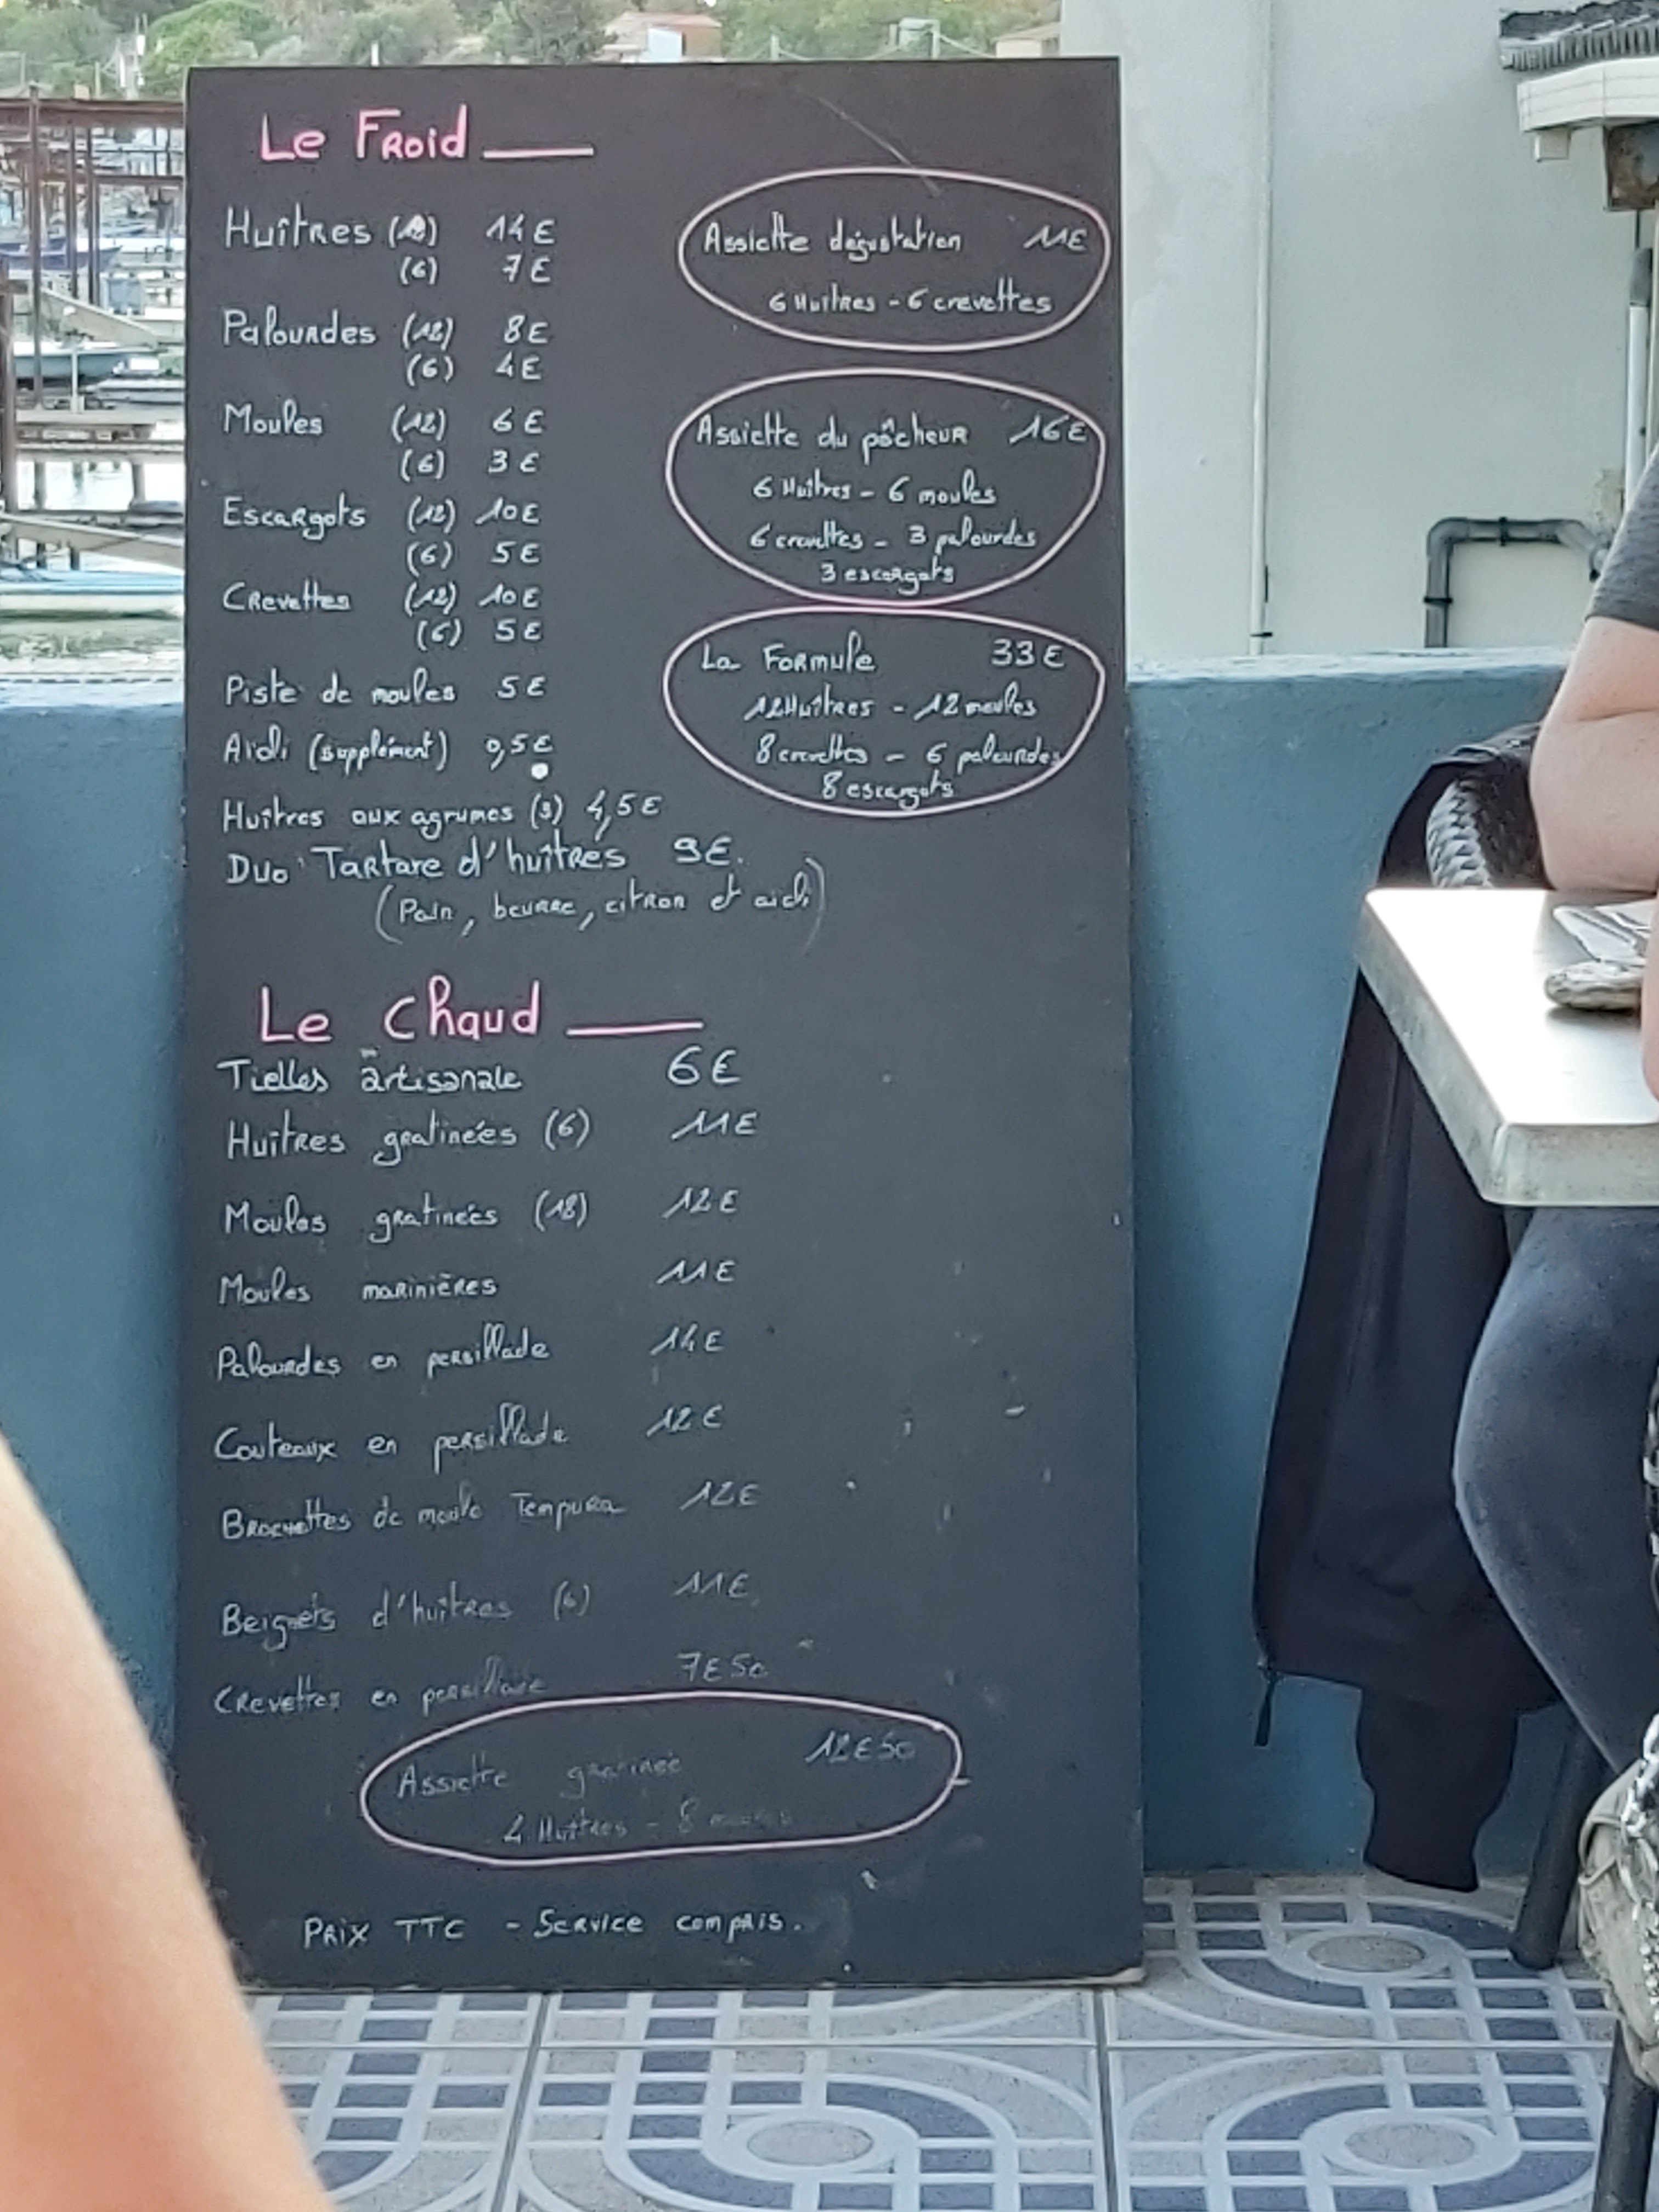 Le Froid
Huîtres (12) 14€
(6) 7€
Palourdes (12) 8€
(6) 4€
Moules (12) 6€
(6) 3€
Escargots (12) 10€
(6) 5€
Crevettes (12) 10€
(6) 5€
Piste de moules 5€
Aïoli (supplément) 0,5€
Huîtres aux agrumes (3) 4,5€
Duo Tartare d'huîtres 9€.
(Pain, beurre, citron et aioli)
Assiette dégustation 11€
6 Huîtres - 6 crevettes
Assiette du pêcheur 16€
6 Huîtres - 6 moules
6 crevettes - 3 palourdes
3 escargots
La Formule 33€
12 Huîtres - 12 moules
8 crevettes - 6 palourdes
8 escargots
Le Chaud
Tielles artisanale 6€
Huîtres gratinées (6) 11€
Moules gratinées (18) 12€
Moules marinières 11€
Palourdes en persillade 14€
Couteaux en persillade 12€
Brochettes de moule Tempura 12€
Beignets d'huîtres (6) 11€
Crevettes en persillade 7€50
Assiette gratinée 12€50
4 Huîtres - 8
Prix TTC - Service compris.